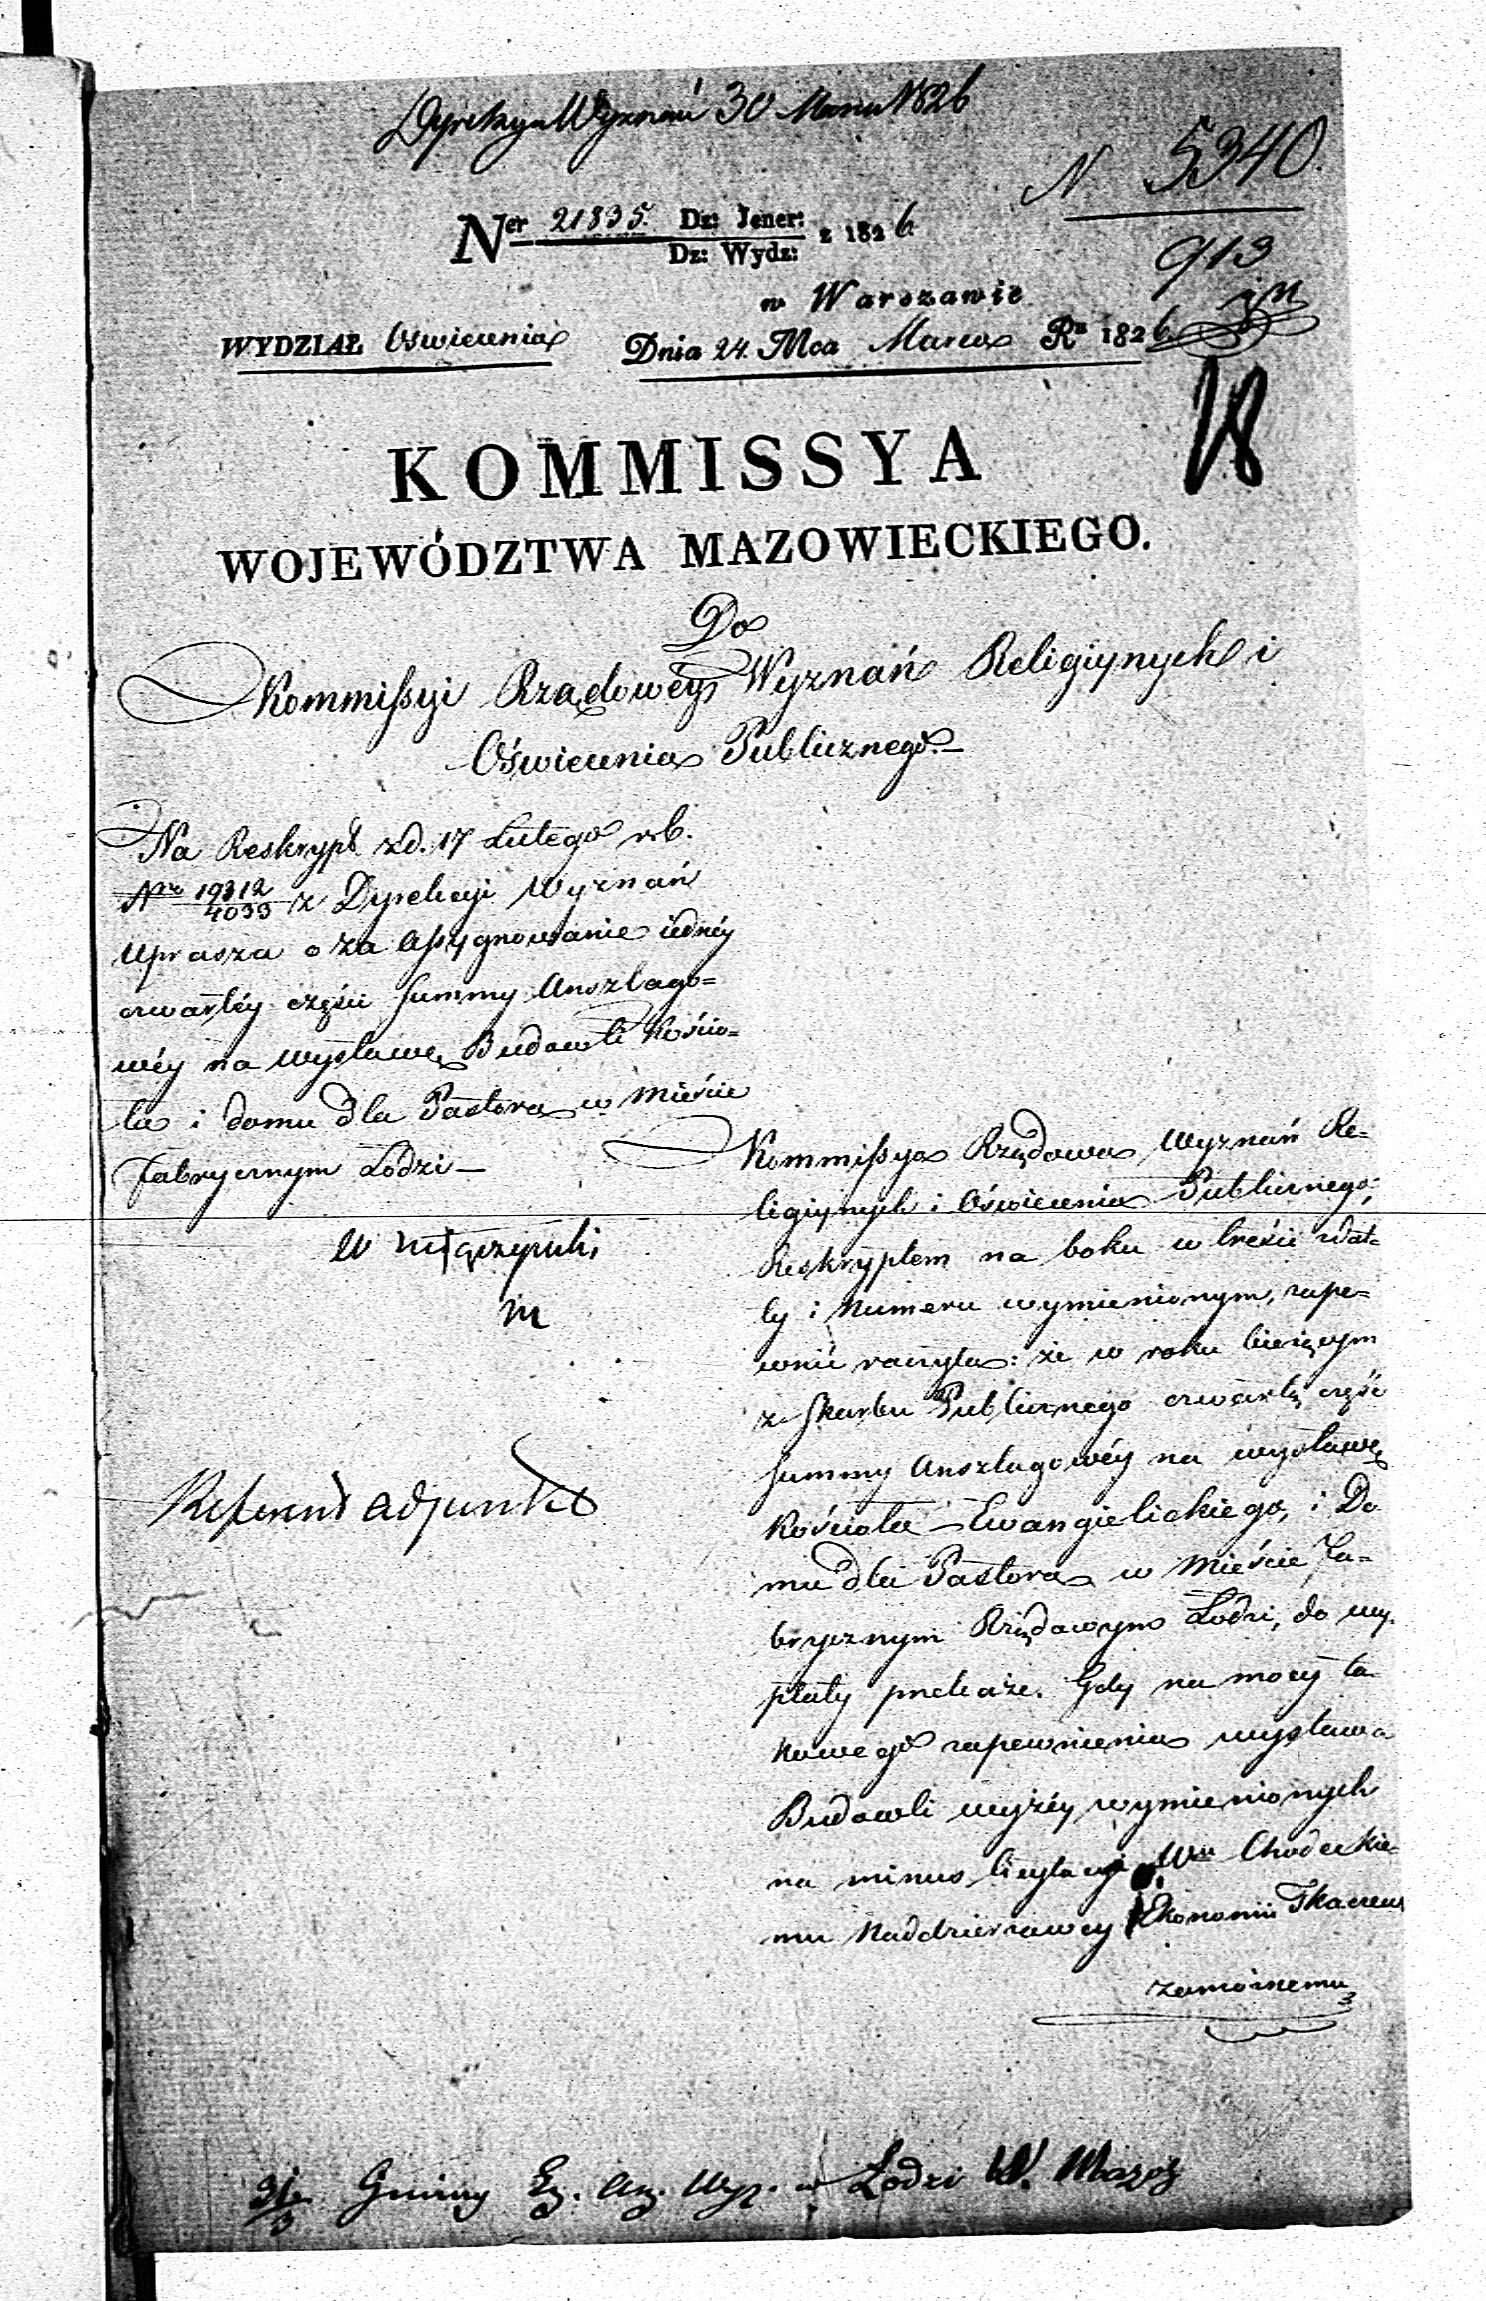 Dyrekcya Wyznań 30 Marca 1826
N 5340.
Ner 21835. Dz: Jener: z 1826
Dz: Wydz:
913
w Warszawie
WYDZIAŁ Oświecenia Dnia 24. Mca Marca Ru 1826.
18
KOMMISSYA
WOJEWÓDZTWA MAZOWIECKIEGO.
Do
Kommissyi Rządowey Wyznań Religiynych i
Oświecenia Publicznego.—
Na Reskrypt z d. 17 Lutego r. b.
Nro 19312/4033 z Dyrekcyi Wyznań
Uprasza o za assygnowanie iednéy
czwartéy części summy Anszlago=
wéy na wystawę Budowli Kościo=
ła i domu dla Pastora w Mieście
fabrycznym Łodzi—
Referent Adjunkt
Kommissya Rządowa Wyznań Re=
ligiynych i Oświecenia Publicznego;
Reskryptem na boku w treści z dat=
ty i Numeru wymienionym, zape=
wnić raczyła: że w roku bieżącym
z Skarbu Publicznego czwartą część
summy Anszlagowéy na wystawę
Kościoła Ewangielickiego, i Do
mu dla Pastora w Mieście Fa=
brycznym Rządowym Łodzi, do wy=
płaty przekaże. Gdy na mocy ta
kowego zapewnienia wystawa
Budowli wyżéy wymienionych
na minus licytacyi Wu Chodeckie=
mu Naddzierżawcy Ekonomii Tkaczew
zamożnemu
31/3 Gminy Ew. Aug. Wyz. w Łodzi W. Mazow